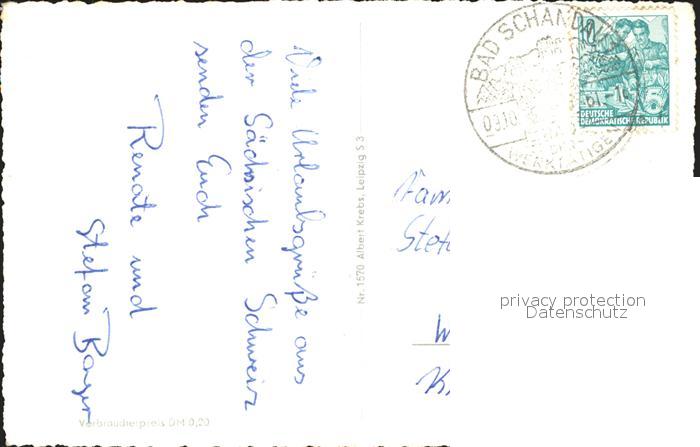 Viele Urlaubsgrüße aus
der Sächsischen Schweiz
senden Euch
Renate und
Stefan
Verbraucherpreis DM 0,20
Nr. 1570 Albert Krebs, Leipzig S 3
BAD SCHANDAU
10
DEUTSCHE
DEMOKRATISCHE REPUBLIK
Fam
Stef
W
K.
privacy protection
Datenschutz